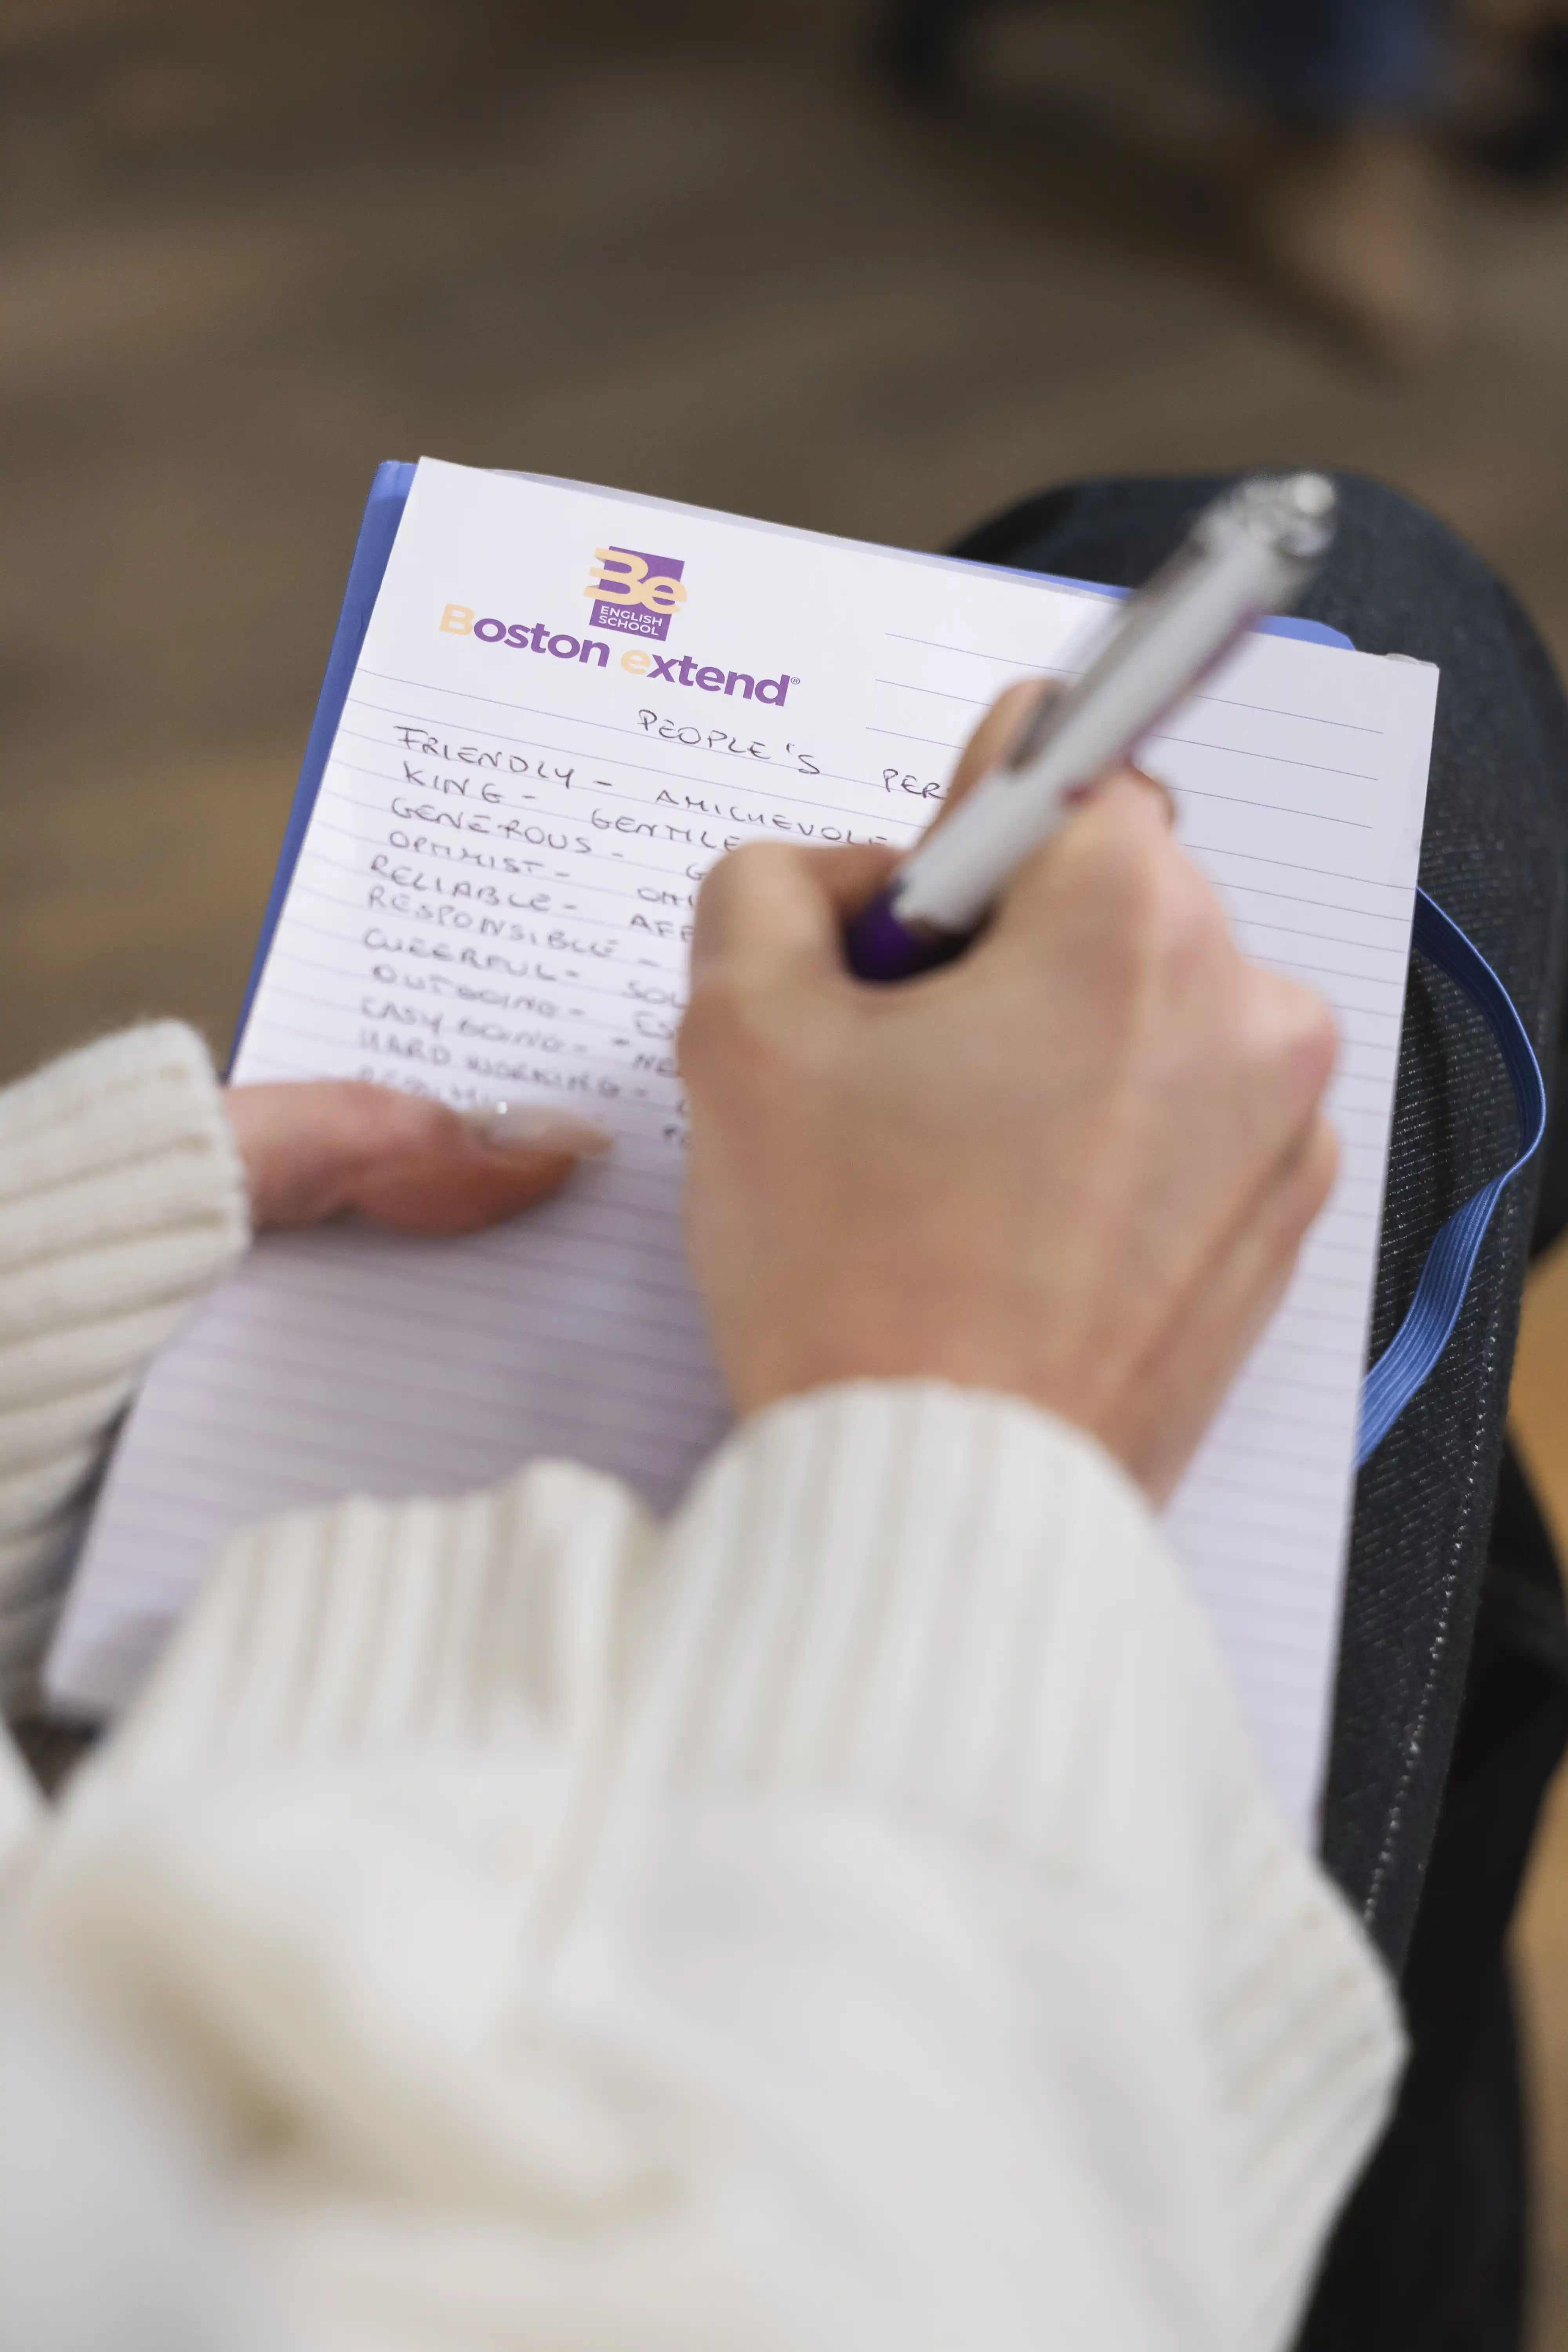 Be
ENGLISH
SCHOOL
Boston extend®
PEOPLE'S PER
FRIENDLY - AMICHEVOLE
KING - GENTILE
GENEROUS - G
OPTIMIST - OTTI
RELIABLE - AFF
RESPONSIBLE -
CHEERFUL - SOL
OUTGOING - ES
EASY GOING - "NE
HARD WORKING -